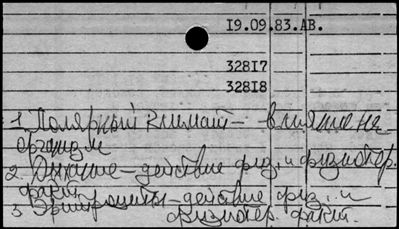 I9.09.83.АВ.
328I7
328I8
1. Полярный климат – влияние на
организм
2. Дыхание – действие физ. и физиотер.
факт.
3. Эритроциты – действие физ. и
физиотер. факт.